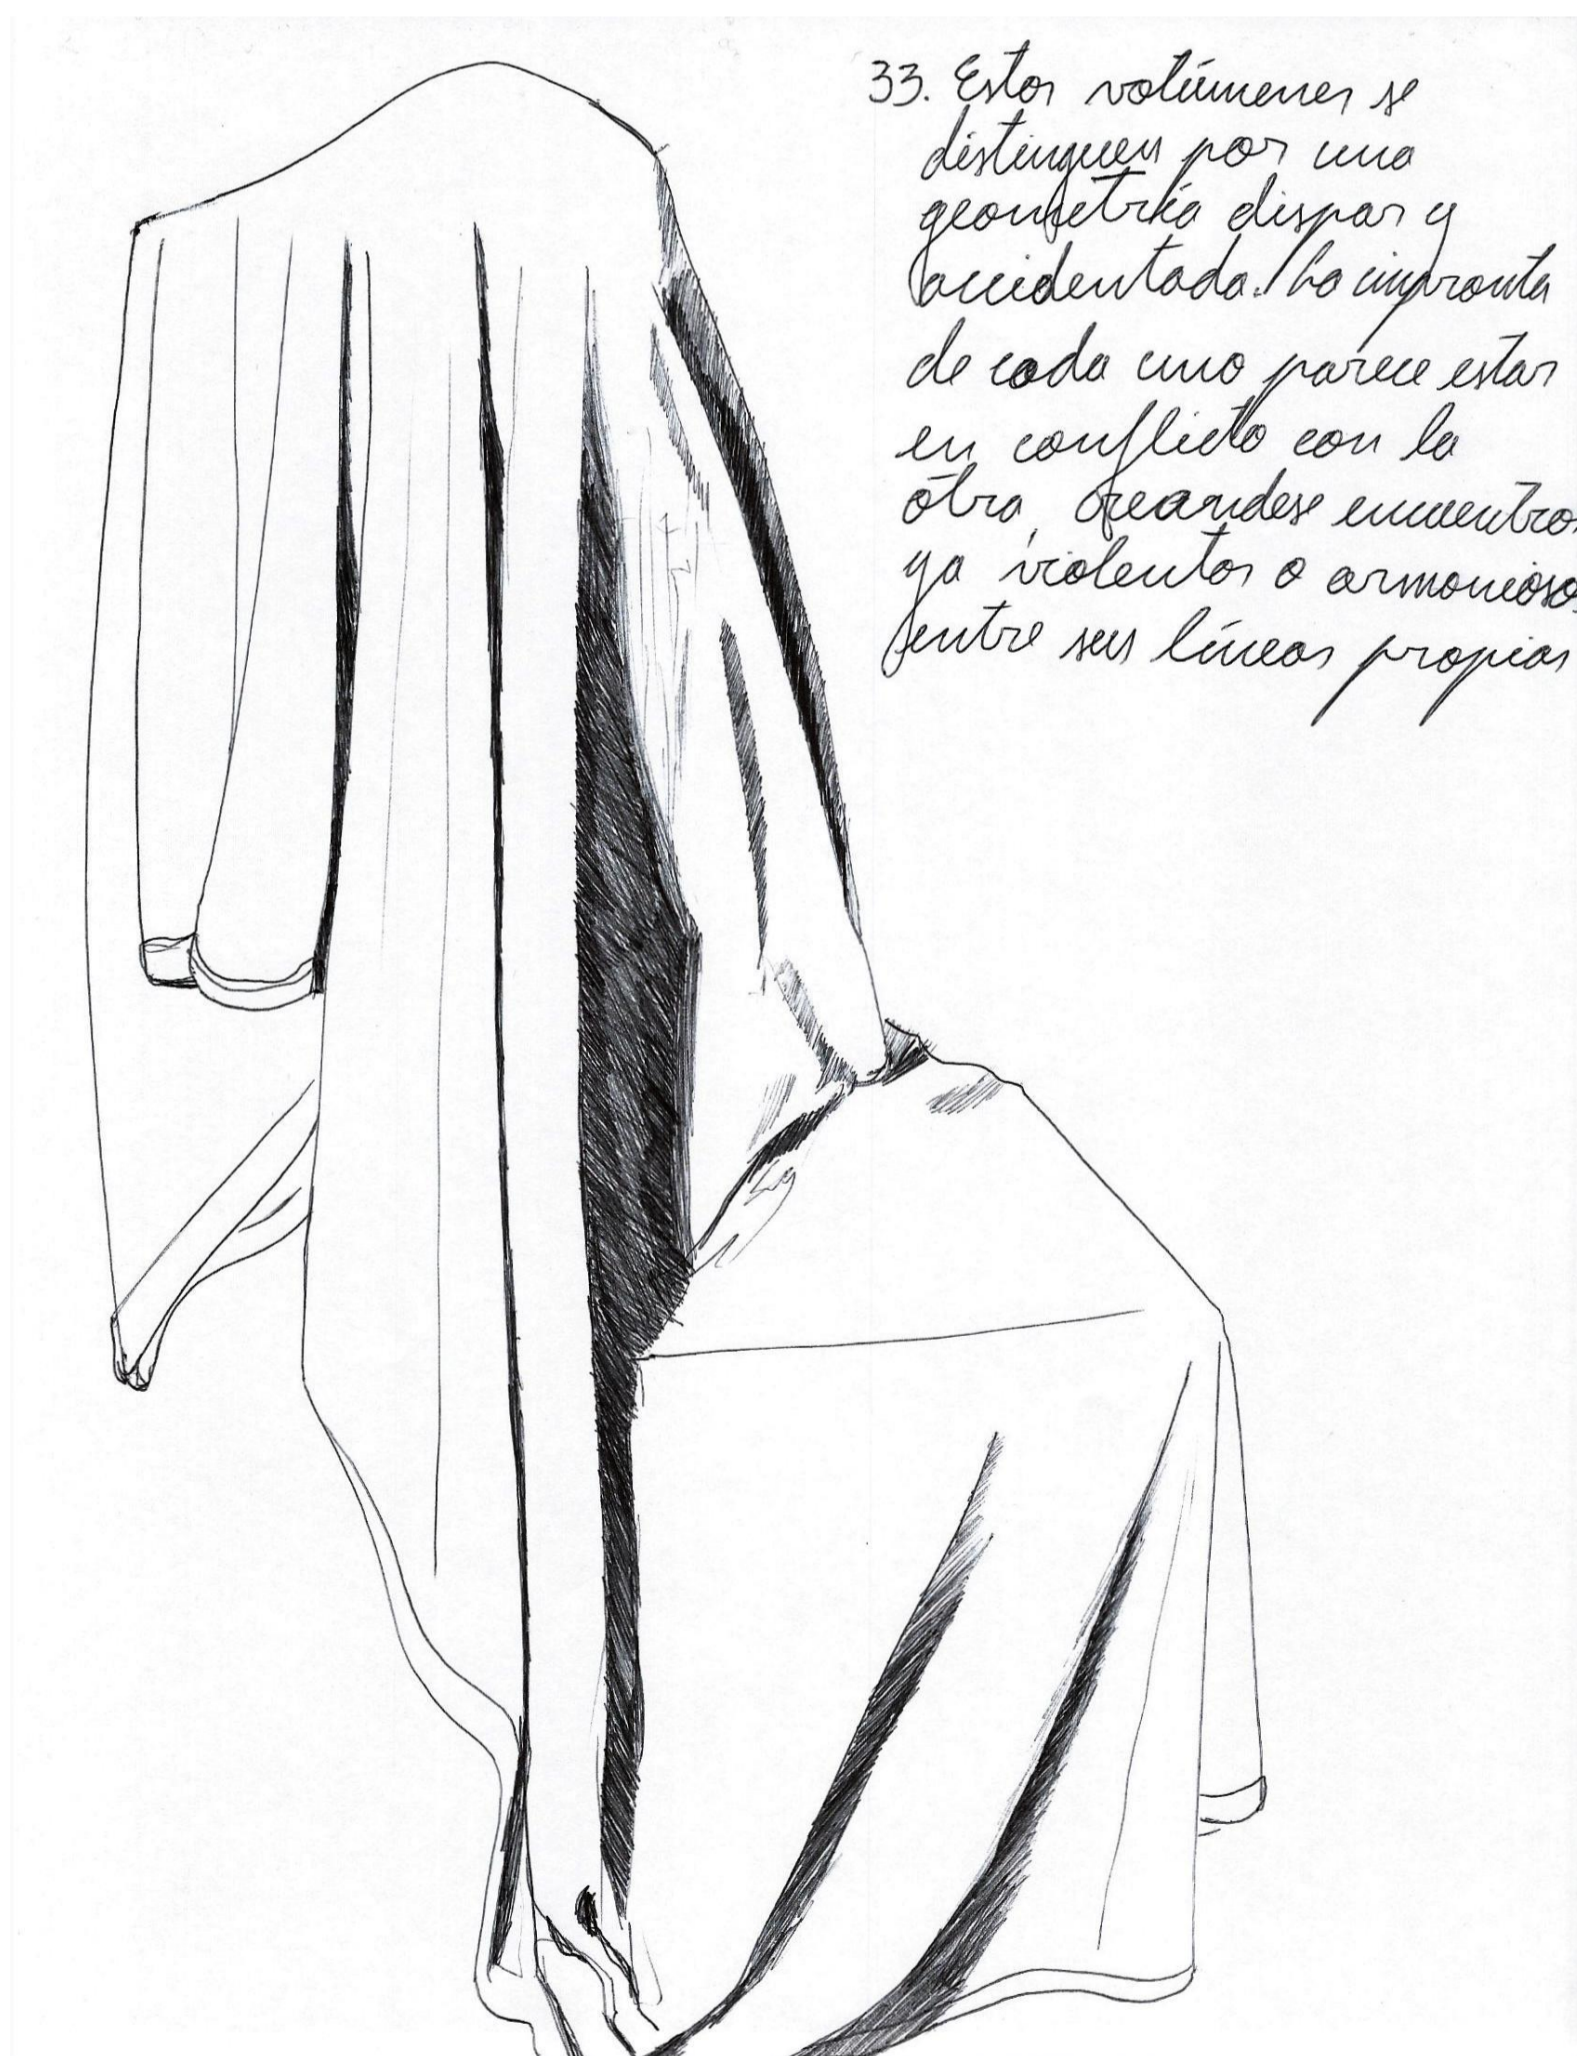 33. Estos volúmenes se
distinguen por una
geometría dispar y
accidentada. La impronta
de cada uno parece estar
en conflicto con la
otra, creandose encuentros
ya violentos o armoniosos
entre sus líneas propias